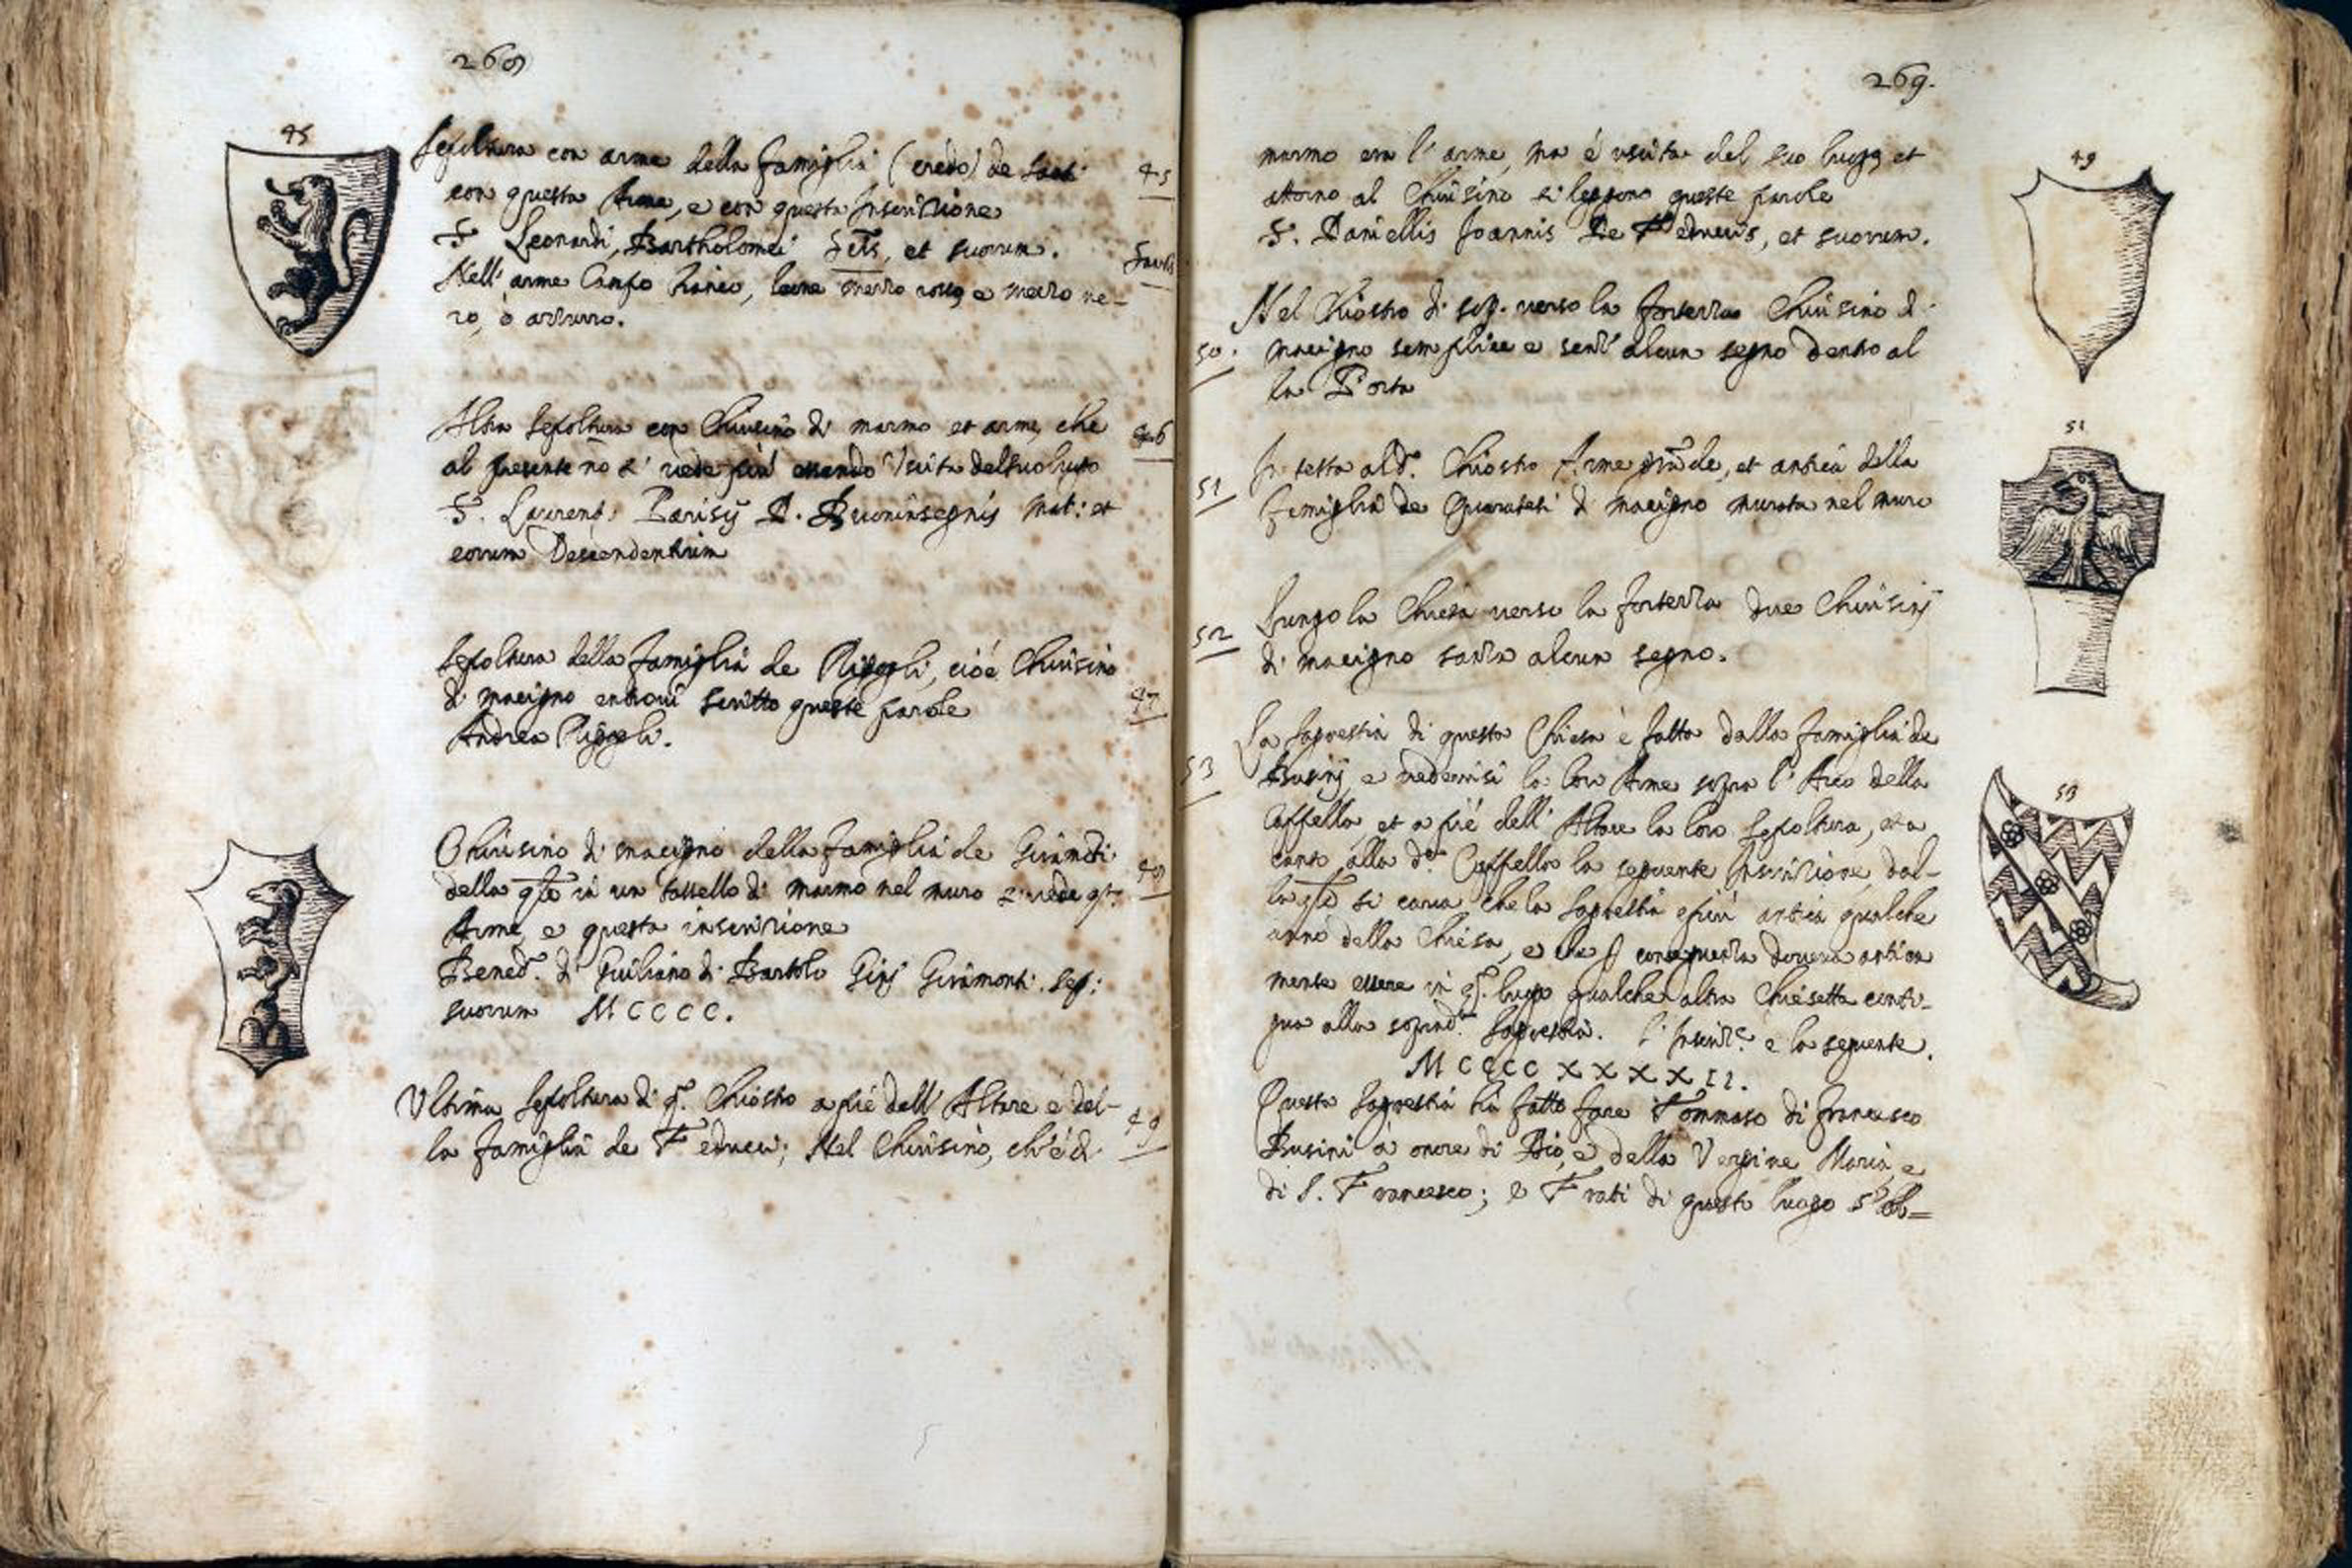 268
45
Sepoltura con arme della famiglia (credo) de
45
con questa Arme, e con questa Inscrizione
S. Leonardi, Bartholomei et suorum.
Nell' arme Campo bianco, leone mezzo rosso e mezzo ne-
ro, ò azzurro.
Altra Sepoltura con Chiusino di marmo et arme, che
46
al presente nō si vede più essendo uscita del suo luogo
S. Laurent. Parisij D. Buoninsegnis Mat: et
eorum Descendentium
Sepoltura della famiglia de cioè Chiusino
di macigno entrovi scritto queste parole
47
Andrea
Chiusino di macigno della famiglia de Giramōti
della qle in un tassello di marmo nel muro si vede qta
48
Arme, e questa inscrizione
Bened.o di Giuliano di Bartolo Ginj Giramonti. Sep:
suorum MCCCC.
Ultima Sepoltura di q.o Chiostro a piè dell' Altare è del-
49
la famiglia de Federicci; Nel Chiusino, ch'è di
269.
marmo era l' arme, ma è uscita del suo luogo, et
49
attorno al Chiusino si leggono queste parole
S. Daniellis Joannis De et suorum.
Nel Chiostro di sop.a verso la fortezza Chiusino di
50.
macigno semplice e senz' alcun segno dentro al
la Porta
51
In testa al d.o Chiostro Arme grāde, et antica della
51
famiglia de Quaratesi di macigno murata nel muro
Lungo la Chiesa verso la fortezza due Chiusinj
52
di macigno sanza alcun segno.
La Sagrestia di questa Chiesa è fatta dalla famiglia de
53
53
Businj, e vedervisi la lor Arme sopra l' Arco della
Cappella, et a piè dell' Altare la loro Sepoltura, et a
canto alla d.a Cappella la seguente Inscrizione, dal-
la qle si cava che la Sagrestia è più antica qualche
anno della Chiesa, e che p conseguenza doveva antica
mente essere in q.o luogo qualche altra Chiesetta conti-
gua alla soprad.a Sagrestia. l' Inscriz.e e la seguente.
MCCCCXXXXII.
Questa Sagrestia hà fatto fare Tommaso di Francesco
Businj à onore di Dio, e della Vergine Maria, e
di S. Francesco; e Frati di questo luogo s' ob=